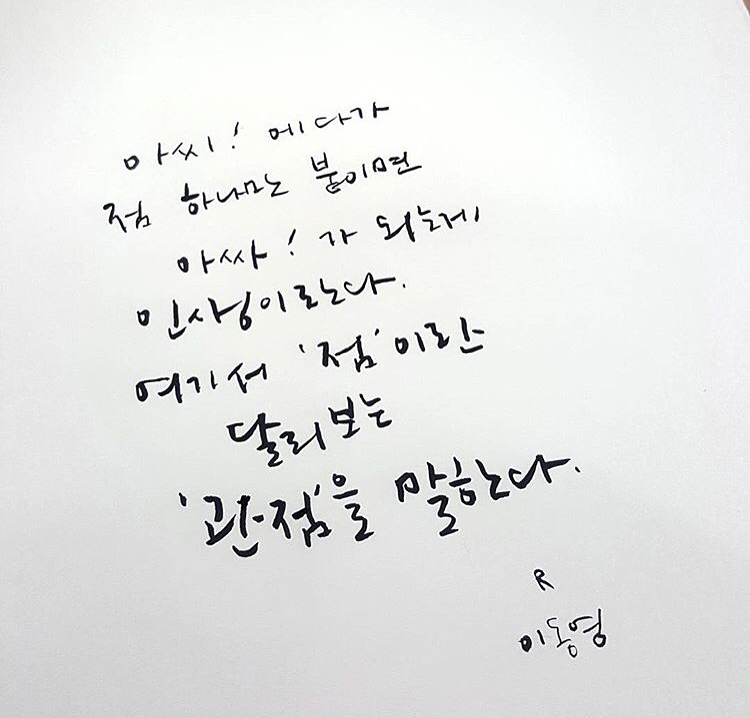 아씨! 에다가
점 하나만 붙이면
아싸! 가 되는게,
인생이란다.
여기서 '점'이란
달리보는
'관점'을 말한다.
R
이동영